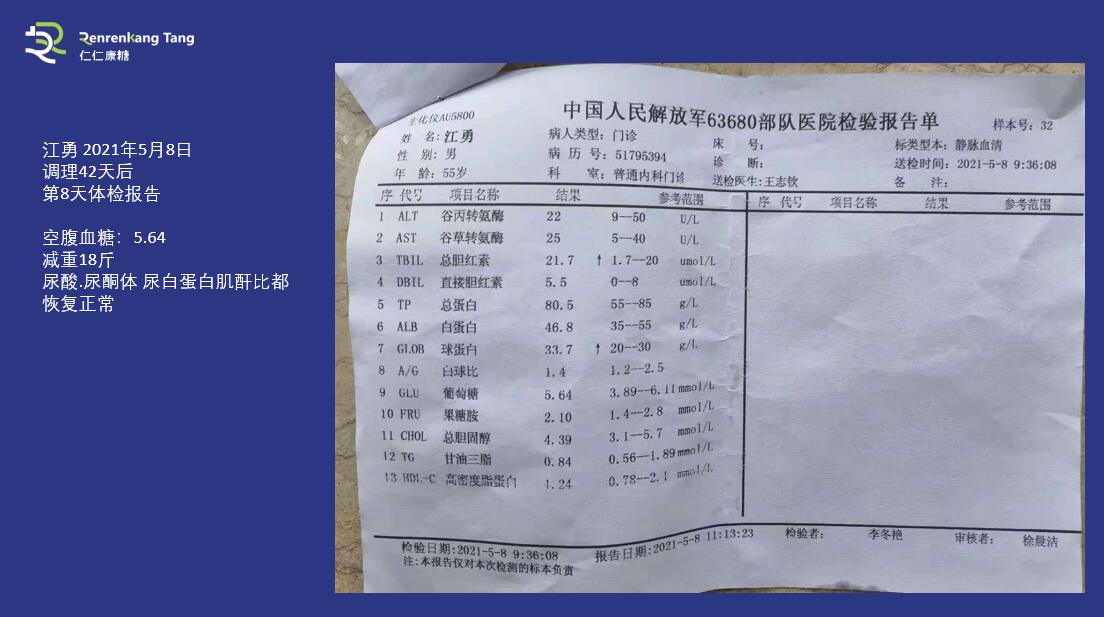 Renrenkang Tang
仁仁康糖
江勇 2021年5月8日
调理42天后
第8天体检报告
空腹血糖：5.64
减重18斤
尿酸.尿酮体 尿白蛋白肌酐比都
恢复正常
生化仪AU5800
中国人民解放军63680部队医院检验报告单
样本号：32
姓 名：江勇 病人类型：门诊 床 号： 标类型本：静脉血清
性 别：男 病 历 号：51795394 诊 断： 送检时间：2021-5-8 9:36:08
年 龄：55岁 科 室：普通内科门诊 送检医生：王志钦 备 注：
序 代号 项目名称 结果 参考范围 序 代号 项目名称 结果 参考范围
1 ALT 谷丙转氨酶 22 9--50 U/L
2 AST 谷草转氨酶 25 5--40 U/L
3 TBIL 总胆红素 21.7 ↑ 1.7--20 umol/L
4 DBIL 直接胆红素 5.5 0--8 umol/L
5 TP 总蛋白 80.5 55--85 g/L
6 ALB 白蛋白 46.8 35--55 g/L
7 GLOB 球蛋白 33.7 ↑ 20--30 g/L
8 A/G 白球比 1.4 1.2--2.5
9 GLU 葡萄糖 5.64 3.89--6.11 mmol/L
10 FRU 果糖胺 2.10 1.4--2.8 mmol/L
11 CHOL 总胆固醇 4.39 3.1--5.7 mmol/L
12 TG 甘油三脂 0.84 0.56--1.89 mmol/L
13 HDL-C 高密度脂蛋白 1.24 0.78--2.1 mmol/L
检验日期：2021-5-8 9:36:08 报告日期：2021-5-8 11:13:23 检验者： 李冬艳 审核者： 徐晨洁
注：本报告仅对本次检测的标本负责